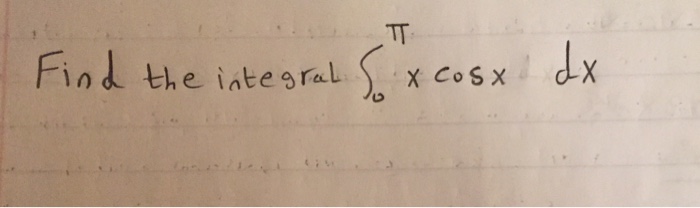 Find the integral ∫₀^π x cosx dx